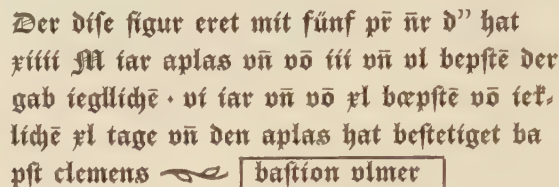 Der diſe figur eret mit fünf pr̄ n̄r d” hat
xiiii M iar aplas vn̄ vō iii vn̄ vl bepſtē der
gab ieglichē · vi iar vn̄ vō xl bœpſtē vō iek⸗
lichē xl tage vn̄ den aplas hat beſtetiget ba
pſt clemens baſtion vlmer